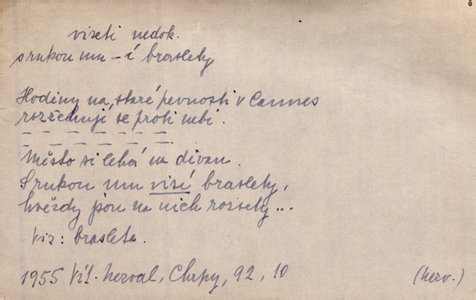 viseti nedok.
s rukou mu -í braslety
Hodiny na staré pevnosti v Cannes
rozéchují se proti nebi.
— — — — — —
— — — — — — —.
Město si lehá na divan.
S rukou mu visí braslety,
hvězdy jsou na nich rozsety...
Viz: brasleta.
1955 Vít. Nezval, Chrpy, 92, 10 (nezv.)